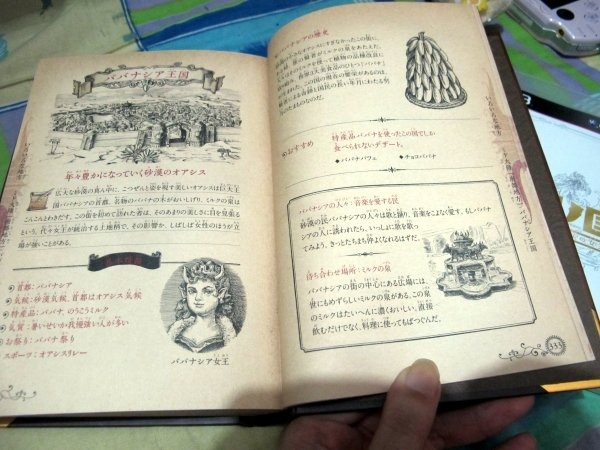 ババナシア王国
年々豊かになっていく砂漠のオアシス
広大な砂漠の真ん中に、こつぜんと姿を現す美しいオアシスは巨大王
国ババナシアの首都。名物のババナの木がおいしげり、ミルクの泉は
こんこんとわきだす。この街を初めて訪れた者は、そのあまりの美しさに目を見張る
という。代々女王が統治する土地柄で、その影響か、しばしば女性のほうが立
場が強いことがある。
基本情報
首都：ババナシア
気候：砂漠気候、首都はオアシス気候
特産品：ババナ、のうこうミルク
気質：暑いせいか我慢強い人が多い
お祭り：ババナ祭り
スポーツ：オアシスリレー
ババナシア女王
ババナシアの歴史
おすすめ
特産品ババナを使ったこの国でしか
食べられないデザート。
ババナパフェ
チョコババナ
ババナシアの人々：音楽を愛する民
砂漠の民ババナシアの人々は歌と踊り、音楽をこよなく愛す。もしババナ
シアの人に誘われたら、いっしょに歌を歌っ
てみよう。きっとたちまち仲よくなれるはずだ。
待ち合わせ場所：ミルクの泉
ババナシアの街の中心にある広場には、
世にもめずらしいミルクの泉がある。この泉
のミルクはたいへんに濃くおいしい。直接
飲むだけでなく、料理に使ってもばつぐんだ。
333